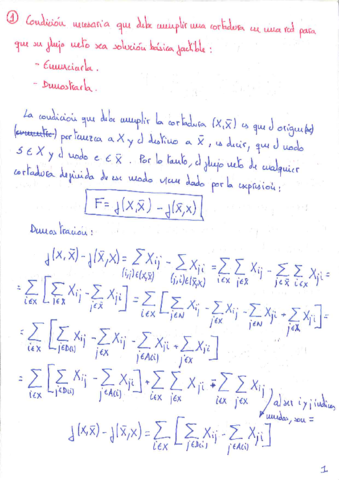 ① Condición necesaria que debe cumplir una cortadura en una red para
que su flujo neto sea solución básica factible:
- Enunciarla.
- Demostrarla.
La condición que debe cumplir la cortadura (X,X̄) es que el origen
pertenezca a X y el destino a X̄, es decir, que el nodo
s∈X y el nodo e∈X̄. Por lo tanto, el flujo neto de cualquier
cortadura definida de ese modo viene dado por la expresión:
F= f(X,X̄) - f(X̄,X)
Demostración:
f(X,X̄)-f(X̄,X)= ∑_{(i,j)∈(X,X̄)} Xij - ∑_{(j,i)∈(X̄,X)} Xji = ∑_{i∈X} ∑_{j∈X̄} Xij - ∑_{j∈X̄} ∑_{i∈X} Xji =
= ∑_{i∈X} [∑_{j∈X̄} Xij - ∑_{j∈X̄} Xji] = ∑_{i∈X} [∑_{j∈N} Xij - ∑_{j∈X} Xij - ∑_{j∈N} Xji + ∑_{j∈X} Xji] =
= ∑_{i∈X} [∑_{j∈D(i)} Xij - ∑_{j∈X} Xij - ∑_{j∈A(i)} Xji + ∑_{j∈X} Xji]
= ∑_{i∈X} [∑_{j∈D(i)} Xij - ∑_{j∈A(i)} Xji] + ∑_{i∈X} ∑_{j∈X} Xji - ∑_{i∈X} ∑_{j∈X} Xij
al ser i y j índices
mudos, son =
f(X,X̄) - f(X̄,X) = ∑_{i∈X} [∑_{j∈D(i)} Xij - ∑_{j∈A(i)} Xji]
1